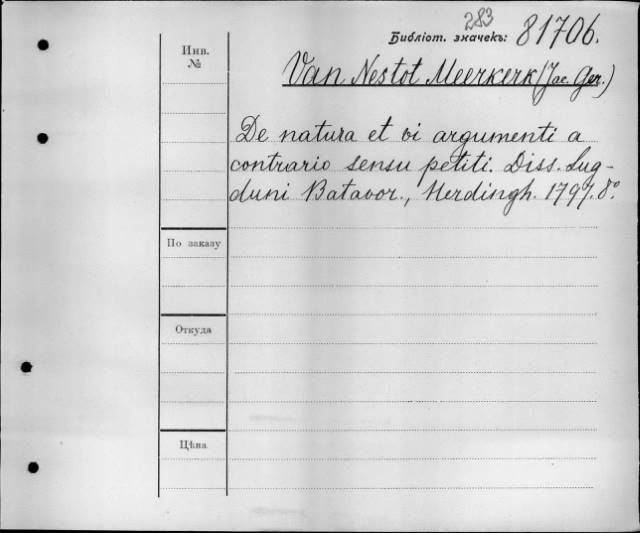 283
Библіот. значекъ: 81706.
Инв.
№
Van Nestot Meerkerk (Jac. Ger.)
De natura et vi argumenti a
contrario sensu petiti. Diss. Lug-
duni Batavor., Herdingh. 1797. 8°.
По заказу
Откуда
Цѣна